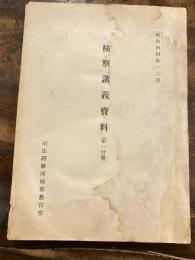 昭和四四年一二月
検察講義資料（第一分冊）
司法研修所検察教官室